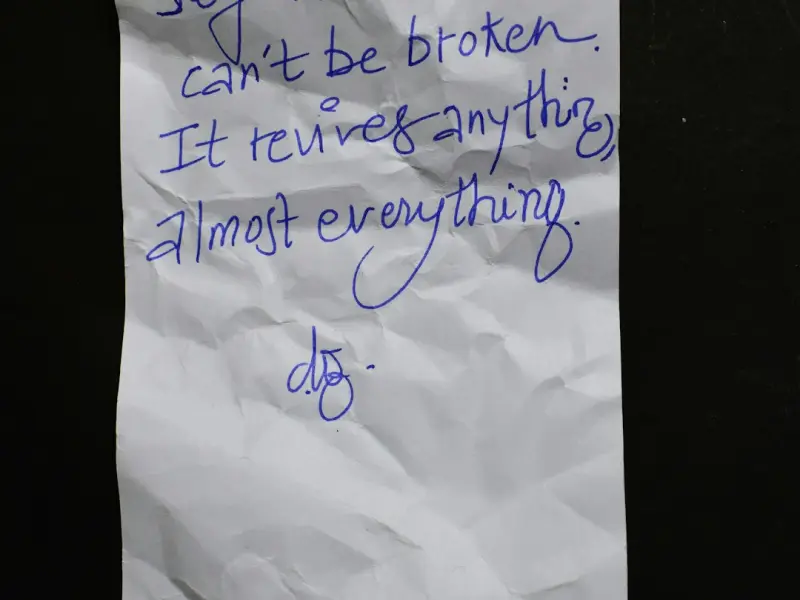 can't be broken.
It revives anything,
almost everything.